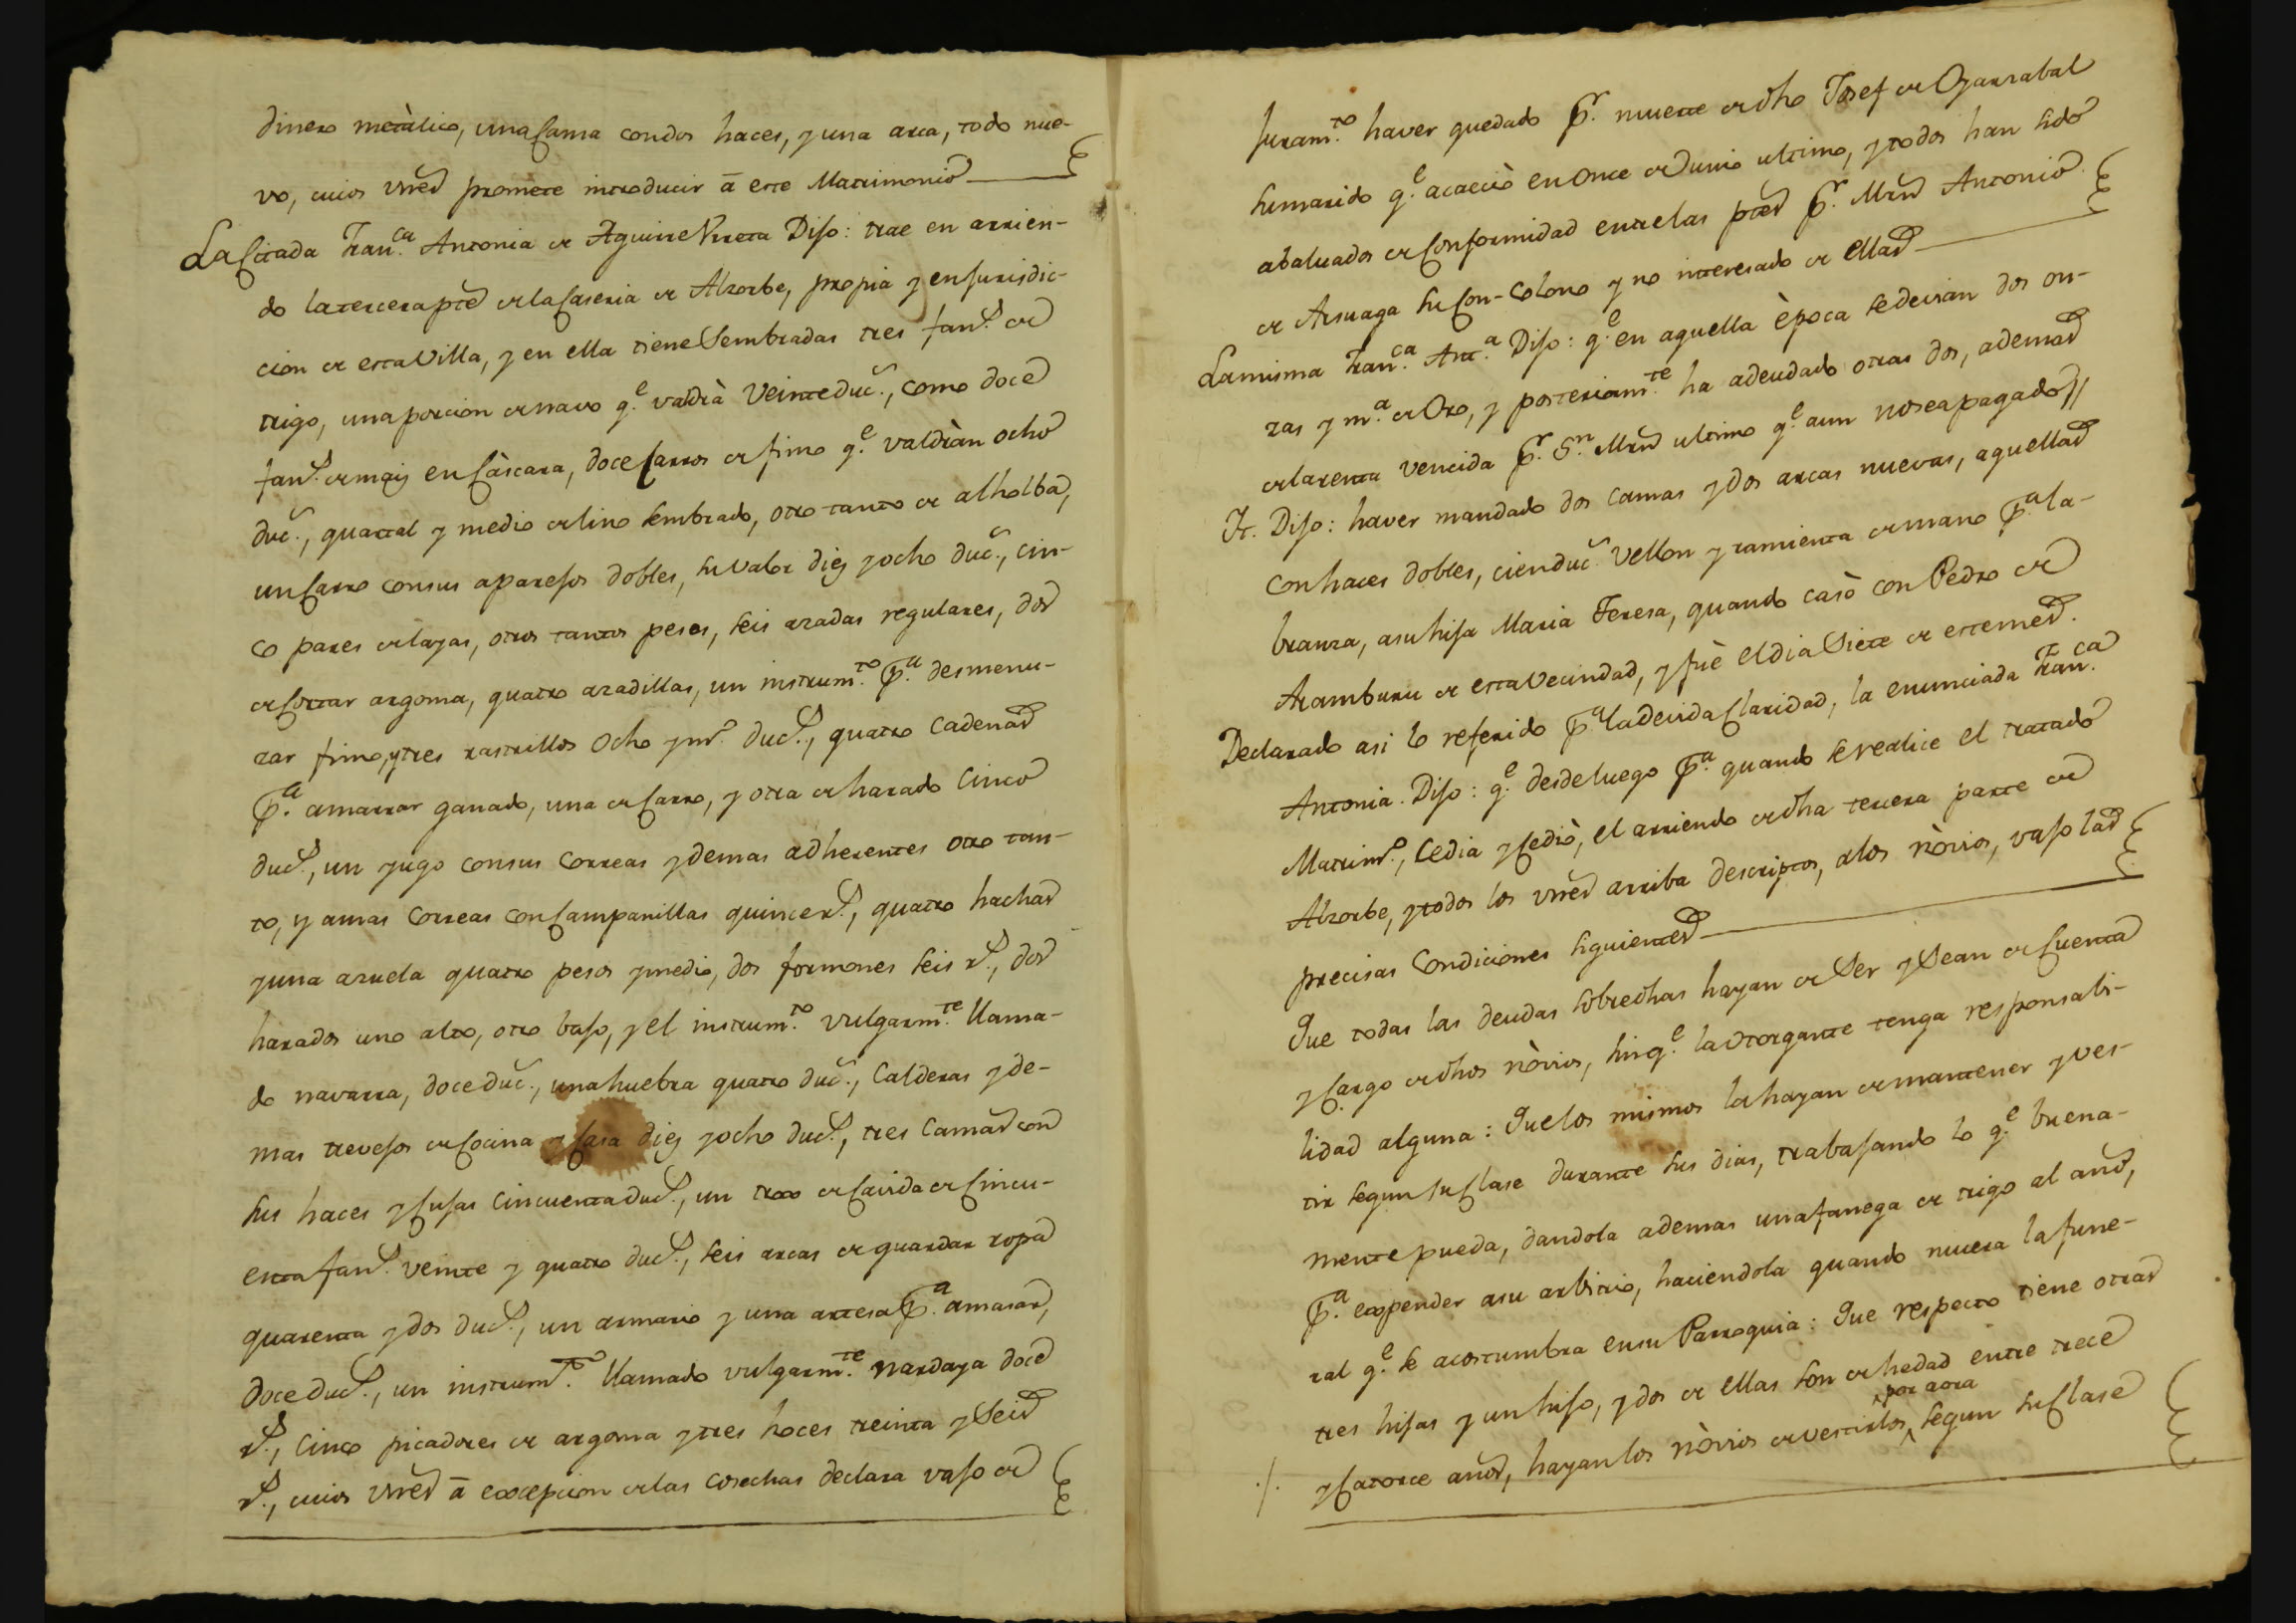 dinero metàlico, una Cama con dos haces, y una arca, todo nue-
vo, cuios vnes promete introducir à este Matrimonio
La Citada Fran.ca Antonia de Aguirre Vrreta Dijo: trae en arrien-
do la tercera pte de la Caseria de Alzorbe, propia y en jurisdic-
cion de esta Villa, y en ella tiene Sembradas tres fan.s de
trigo, una porcion de navo q.e valdrà Veinte duc.s, como doce
fan.s de maiz en Càscara, doce Carros de fimo q.e valdràn ocho
duc.s, quartal y medio de lino sembrado, otro tanto de alholba,
un Carro con sus aparejos dobles, su valor diez y ocho duc.s, cin-
co pares de layas, otros tantos peses, seis azadas regulares, dos
de Cortar argoma, quatro azadillas, un instrum.to p.a desmenu-
zar fimo, y tres rastrillos Ocho y m.o duc.s, quatro Cadenas
p.a amarrar ganado, una de Carro, y otra de harado Cinco
duc.s, un yugo con sus Correas y demas adherentes otro tan-
to, y amas Correas con Campanillas quince r.s, quatro hachas
y una azuela quatro pesos y medio, dos formones seis r.s, dos
harados uno alto, otro bajo, y el instrum.to vulgarm.te llama-
do navarra, doce duc.s, una huebra quatro duc.s, Calderas y de-
mas trevejos de Cocina y Casa diez y ocho duc.s, tres Camas con
sus haces y Cujas Cincuenta duc.s, un troxo de Cavida de Cincu-
enta fan.s veinte y quatro duc.s, seis arcas de guardar ropa
quarenta y dos duc.s, un armario y una artesa p.a amasar,
doce duc.s, un instrum.to llamado vulgarm.te nardaya doce
r.s, Cinco picadores de argoma y tres hoces treinta y Seis
r.s, cuios Vnes à excepcion de las Cosechas declara vajo de
juram.to haver quedado p.r muerte de dho Josef de Oyarzabal
su marido q.e acaeciò en Once de Junio ultimo, y todos han sido
abaluados de Conformidad entre las ptes p.r Mrn Antonio
de Arsuaga su Con-Colono y no interesado de ellas
La misma Fran.ca Ant.a Dijo: q.e en aquella època se devian dos on-
zas y m.a de Oro, y posteriorm.te ha adeudado otras dos, ademas
de la renta vencida p.r S.n Mrn ultimo q.e aun no se a pagado //
It. Dijo: haver mandado dos camas y dos arcas nuevas, aquellas
con haces dobles, cien duc.s Vellon y ramienta de mano p.a la-
branza, a su hija Maria Teresa, quando casò con Pedro de
Aramburu de esta Vecindad, y fuè el dia Siete de este mes.
Declarado asi lo referido p.a la devida Claridad, la enunciada Fran.ca
Antonia. Dijo: q.e desde luego p.a quando se realice el tratado
Matrim.o, Cedia y Cediò, el arriendo de dha tercera parte de
Alzorbe, y todos los vnes arriba descriptos, a los nòvios, vajo las
precisas Condiciones siguientes
Que todas las deudas sobredhas hayan de Ser y Sean de Cuenta
y Cargo de dhos nòvios, sin q.e la Otorgante tenga responsabi-
lidad alguna: Que los mismos la hayan de mantener y ves-
tir segun su Clase durante sus dias, trabajando lo q.e buena-
mente pueda, dandola ademas una fanega de trigo al año,
p.a expender a su arbitrio, haciendola quando muera la fune-
ral q.e se acostumbra en su Parroquia: Que respecto tiene otras
tres hijas y un hijo, y dos de ellas son de hedad entre trece
por aora
y Catorce años, hayan los nòvios de vestirlos ^ segun su Clase
./.